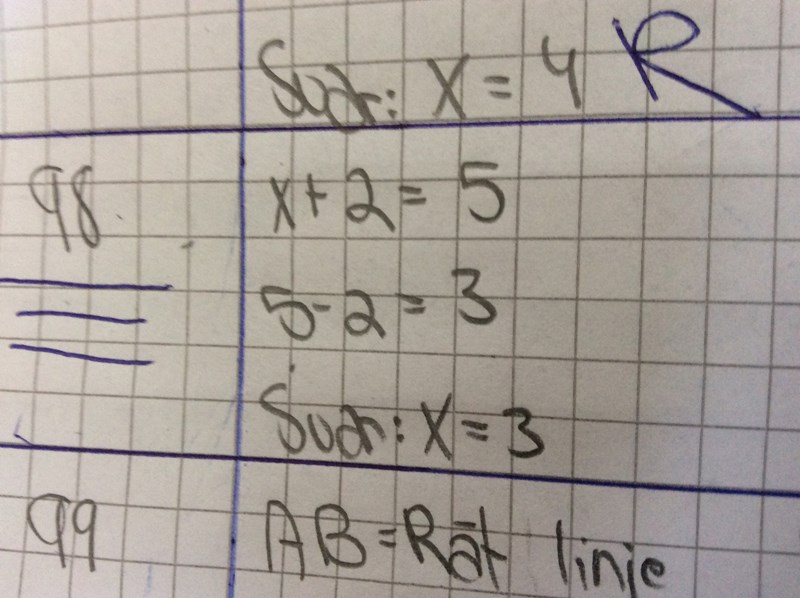 Svar: X = 4 R
98 x + 2 = 5
5 - 2 = 3
Svar: X = 3
99 AB = Rät linje